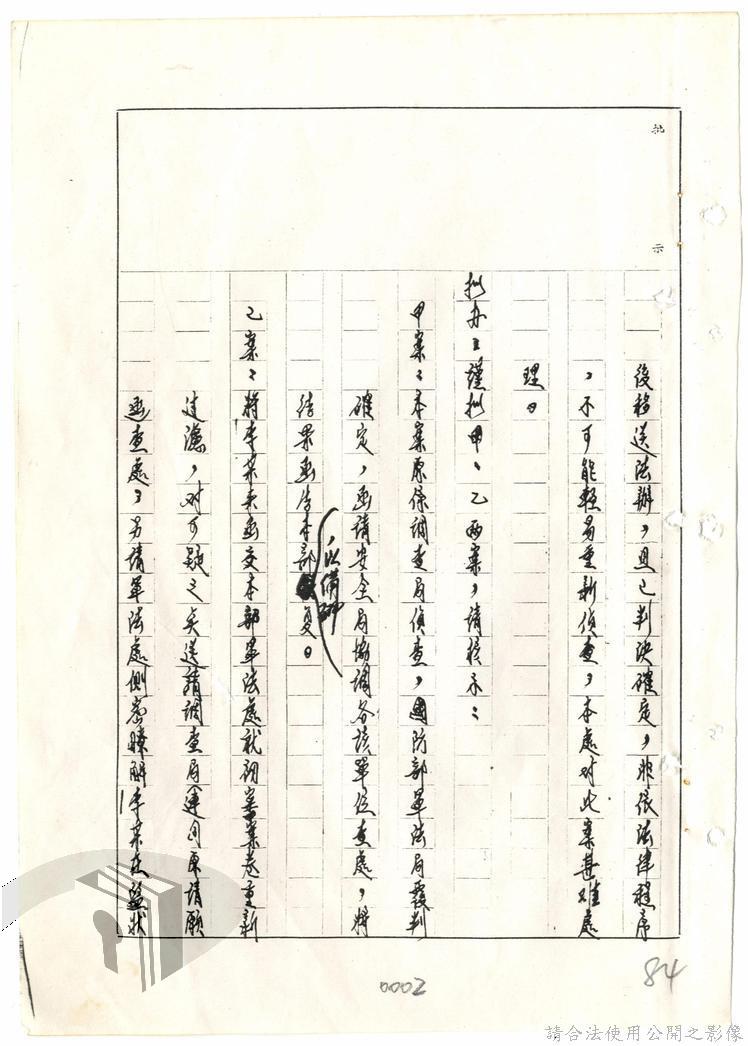 批示
後移送法辦，且已判決確定，非依法律程序
，不可能輕易重新偵查，本處對此案甚难處
理。
拟办：謹拟甲、乙兩案，請核示：
甲案：本案原係調查局偵查，國防部軍法局覆判
確定，函請安全局協調各該單位查處，將
結果函告本部，以備 复。
乙案：將李某來函交本部軍法處就初審案卷重新
过濾，对可疑之矣送請調查局（連同原請願
函查處，另請軍法處側密瞭解李某在監狀
84
0002
請合法使用公開之影像